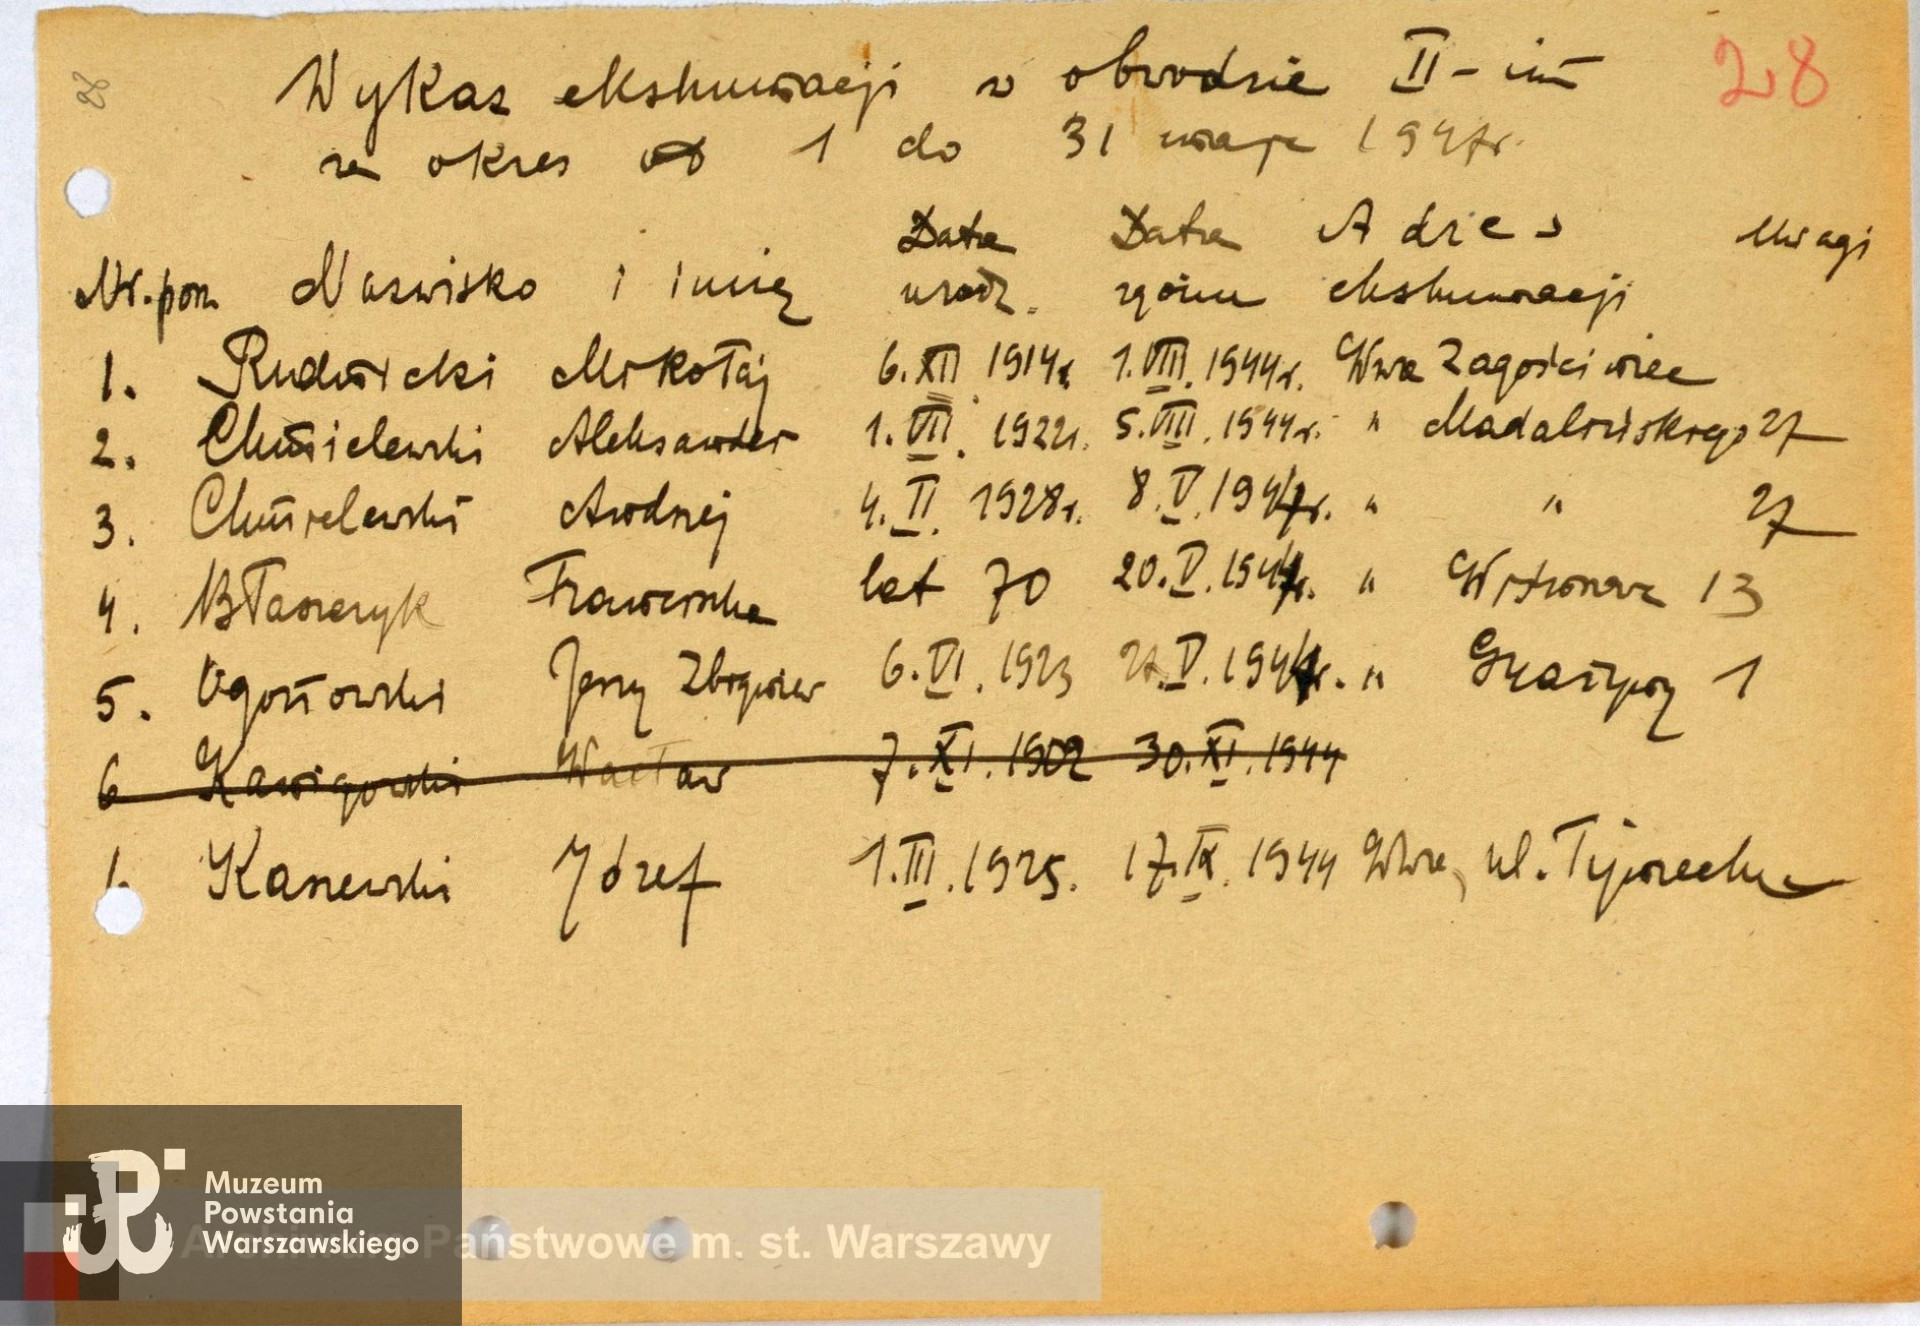 28
Wykaz ekshumacji w obwodzie II-im
28
za okres od 1 do 31 maja 1947r.
Nr. porz. Nazwisko i imię Data urodz. Data zgonu Adres ekshumacji Uwagi
1. Rudnicki Mikołaj 6.XII 1914r. 1.VIII.1944r. Wwa Zagościniec
2. Chmielewski Aleksander 1.VII.1922r. 5.VIII.1944r. " Madalińskiego 27
3. Chmielewski Andrzej 4.II.1928r. 8.V.1947r. " " 27
4. Błaszczyk Franciszka lat 70 20.V.1947r. " Wiktorska 13
5. Ogotowski Jerzy Zbigniew 6.VI.1923 27.V.1947r. " Grażyny 1
6 Wacław 7.XI.1902 30.XI.1944
1. Kaszewski Józef 1.III.1925. 17.IX.1944 Wwa, ul.
Muzeum
Powstania
Warszawskiego
Państwowe m. st. Warszawy